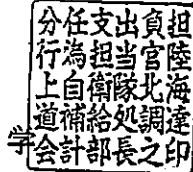 分任支出負担
行為担当官陸
上自衛隊北海
道補給処調達
会計部長之印
学